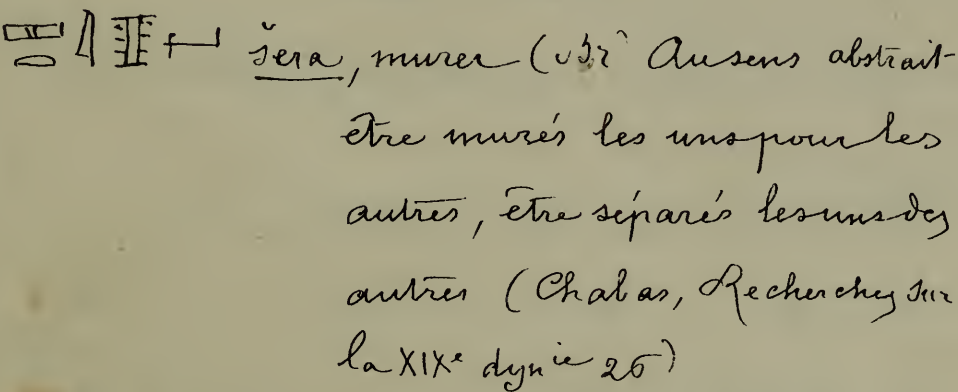 šera, murer ( Au sens abstrait
être murés les uns pour les
autres, être séparés les uns des
autres (Chabas, Recherches sur
la XIXe dynie 26)